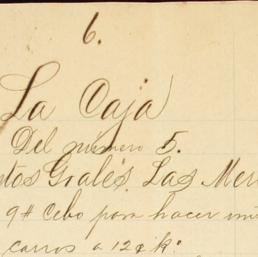 6.
La Caja
Del número 5.
Grales. Las
9 # Cebo para hacer
carros a 12¢ k°